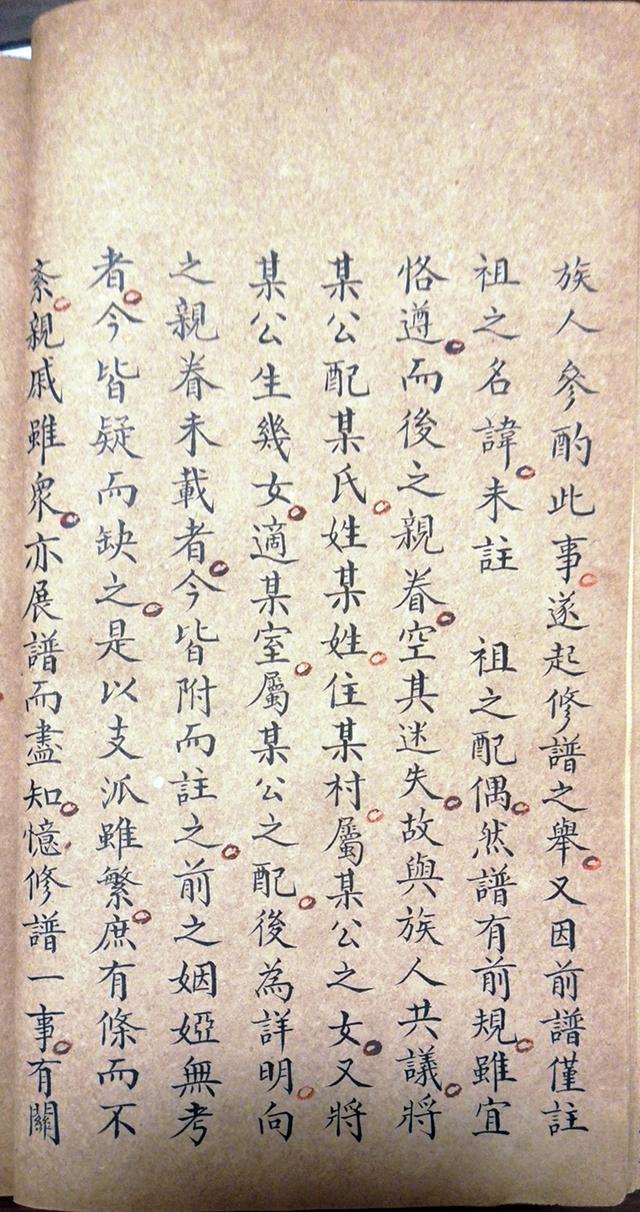 族人參酌此事。遂起修譜之舉。又因前譜僅註
祖之名諱。未註　祖之配偶。然譜有前規。雖宜
恪遵。而後之親眷。空其迷失。故與族人共議。將
某公配某氏。姓某姓。住某村。屬某公之女。又將
某公生幾女。適某室。屬某公之配。後為詳明。向
之親眷未載者。今皆附而註之。前之姻婭無考
者。今皆疑而缺之。是以支派雖繁。庶有條而不
紊。親戚雖衆。亦展譜而盡知。憶修譜一事。有關